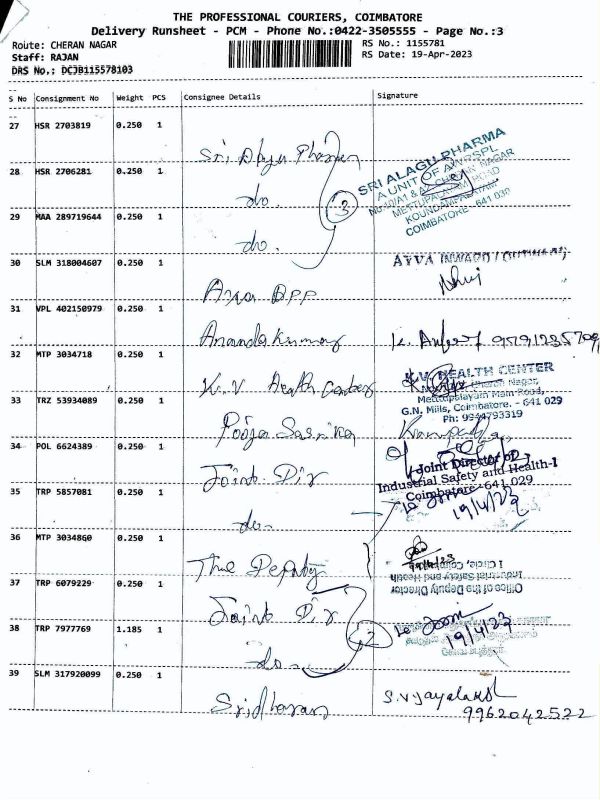 THE PROFESSIONAL COURIERS, COIMBATORE
Delivery Runsheet - PCM - Phone No.:0422-3505555 - Page No.:3
Route: CHERAN NAGAR
RS No.: 1155781
Staff: RAJAN
RS Date: 19-Apr-2023
DRS No.: DCJB115578103
S No Consignment No Weight PCS Consignee Details Signature
27 HSR 2703819 0.250 1
Sri
SRI ALAGU PHARMA
A UNIT OF
28 HSR 2706281 0.250 1
do.
3
METTUPALAYAM ROAD
COIMBATORE - 641 030
29 MAA 289719644 0.250 1
do.
30 SLM 318004607 0.250 1
31 VPL 402150979 0.250 1
Ananda Kumar
32 MTP 3034718 0.250 1
K.V Health Center
K.V. HEALTH CENTER
Mettupalayam Main Road,
G.N. Mills, Coimbatore. - 641 029
Ph: 9944793319
33 TRZ 53934089 0.250 1
Pooja
34 POL 6624389 0.250 1
Joint Dir
Joint Director of
Industrial Safety and Health-I
Coimbatore - 641 029
19/4/23
35 TRP 5857081 0.250 1
do.
36 MTP 3034860 0.250 1
The Deputy
Office of the Deputy Director
Industrial Safety and Health
I Circle,
37 TRP 6079229 0.250 1
Joint Dir
2
19/4/23
38 TRP 7977769 1.185 1
do.
39 SLM 317920099 0.250 1
Sridharan
S.Vijayalaksh
9962042522